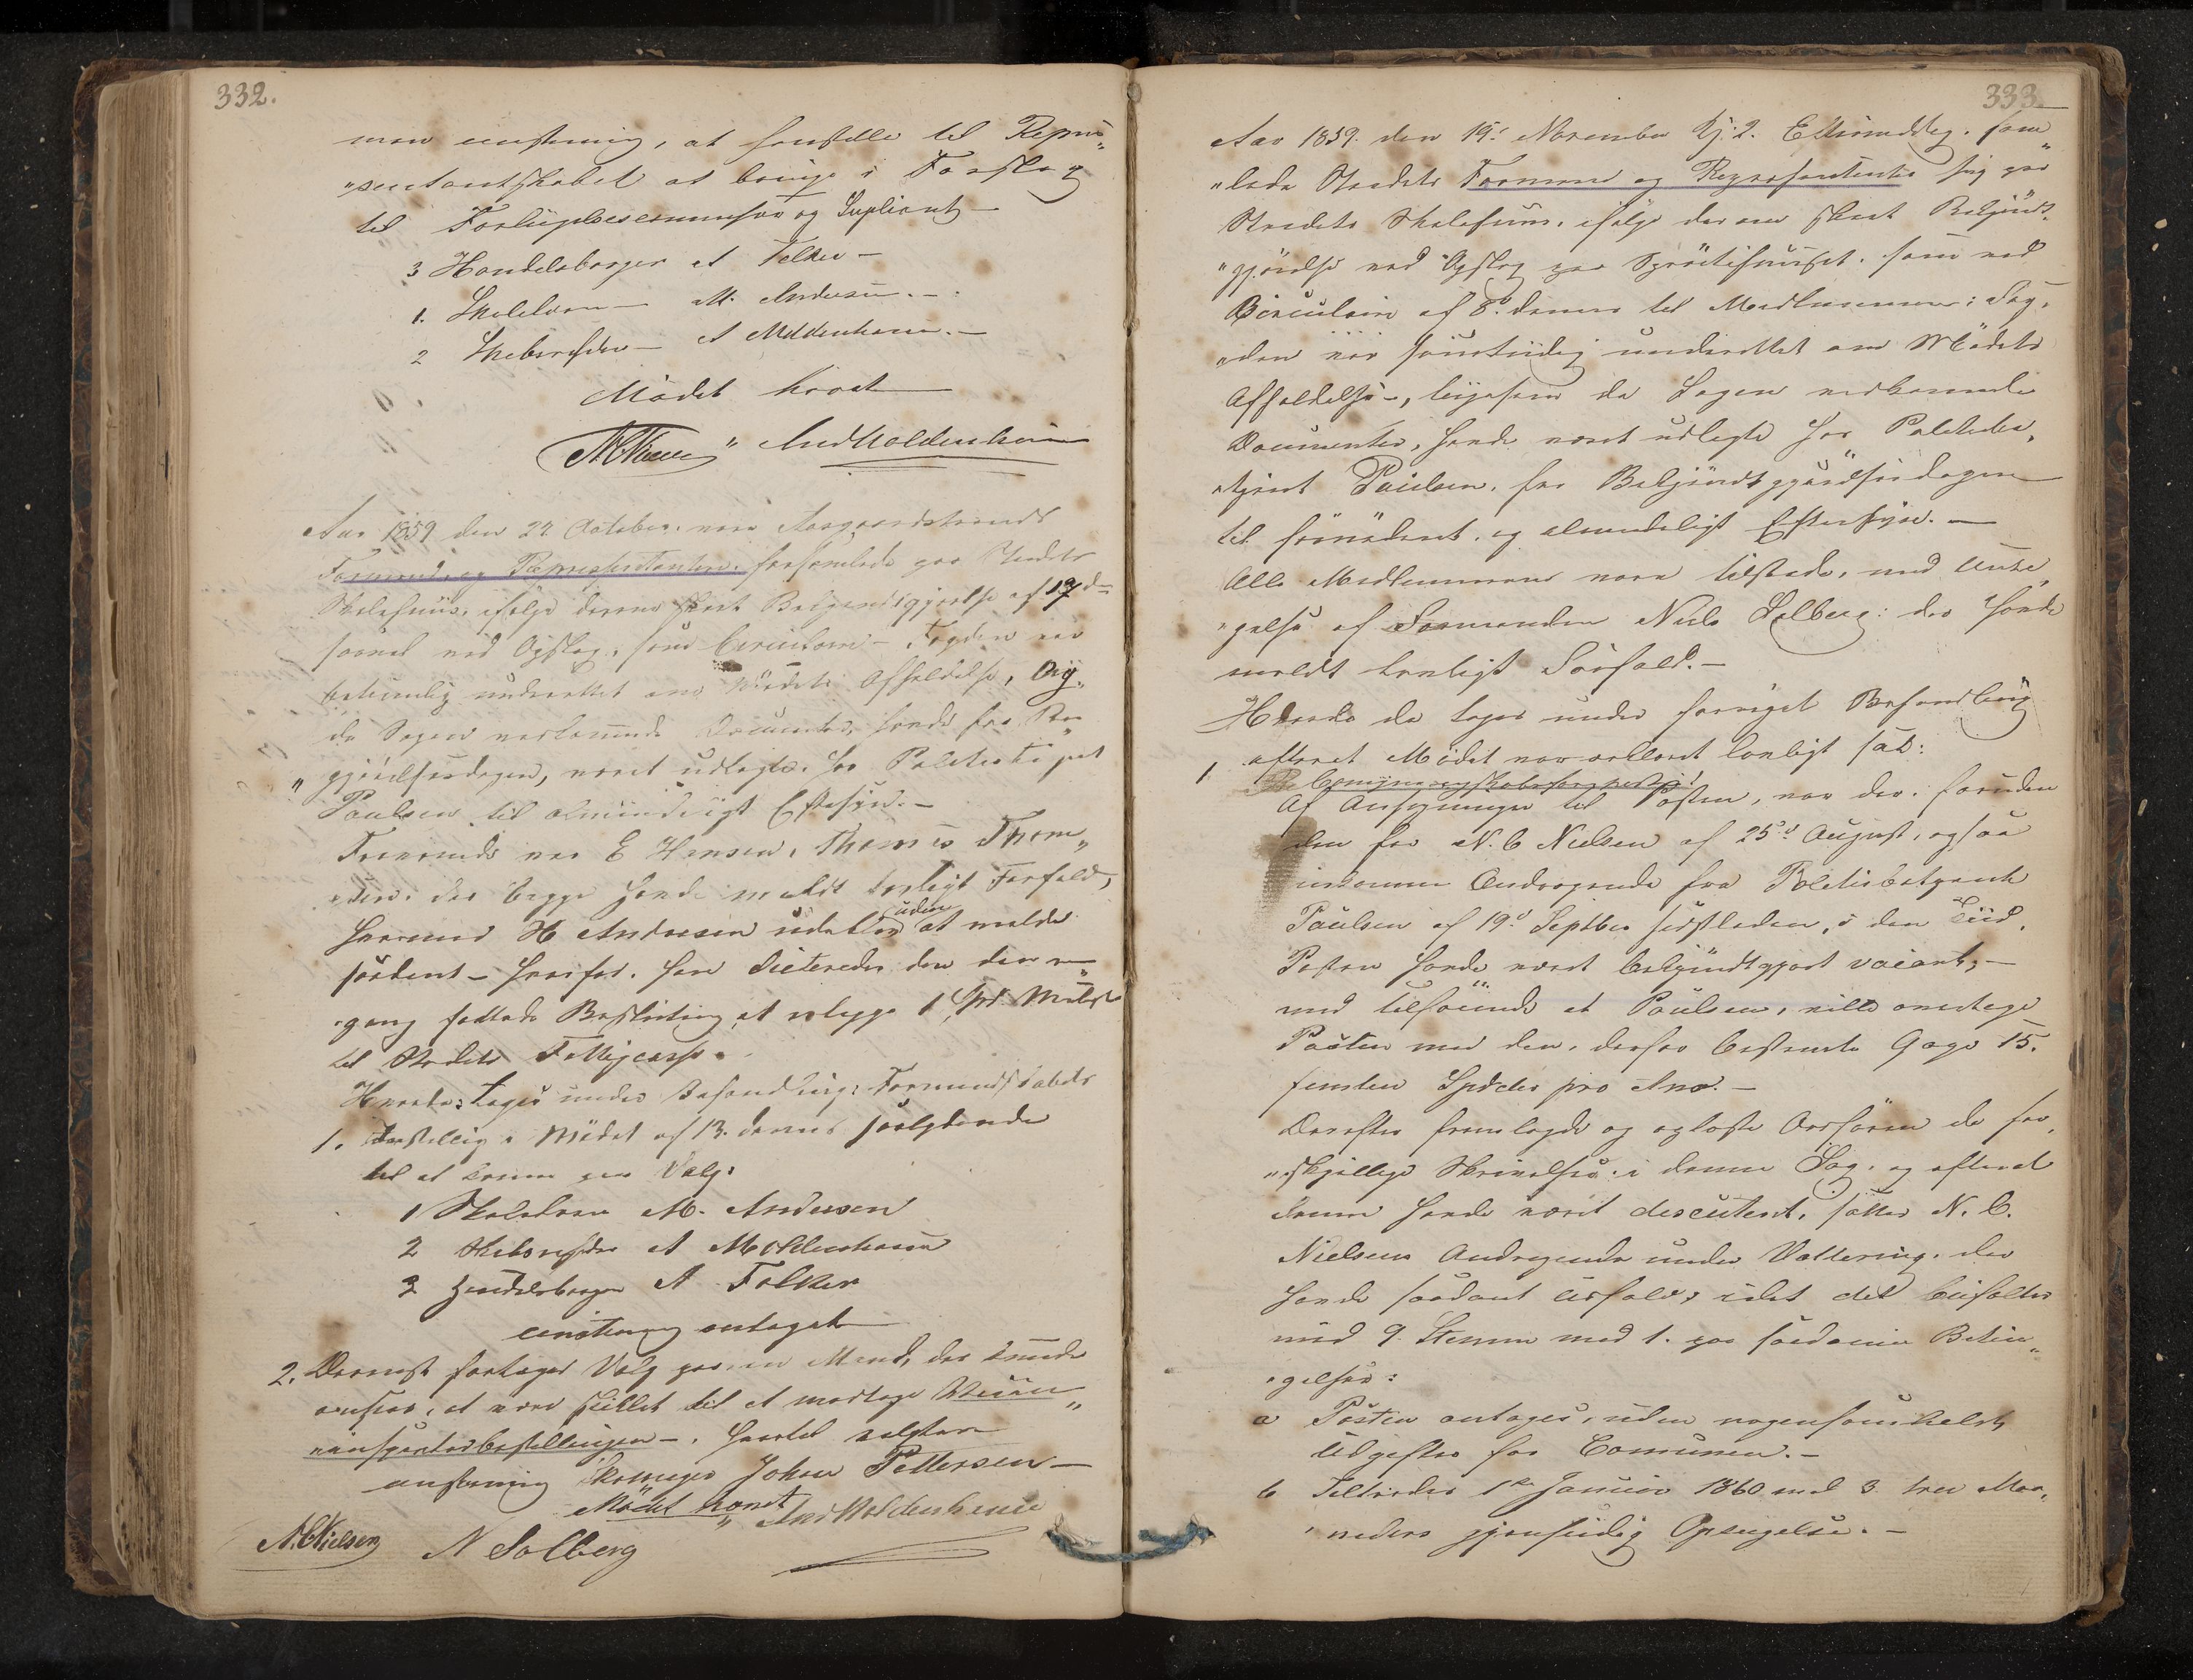 332.
man eenstemig, at henstille til Repræ„
„sentantskabet at bringe i Forslag
til Forligelsescommisær og Supliant
3 Handelsborger A Felker –
1. Skolelærer – M. Andersen. –
2 Skibsreder – A Moldenhauer. –
Mødet hævet
NCNielsen " AndMoldenhauer
Aar 1859 den 24 October var Aasgaardstrands
Formænd og Repræsentanter forsamlede paa Stedets
Skolehuus, ifølge derom skeet Bekjendtgjørelse af 19de
saavel ved Opslag, som Circulaire – Fogden var
betimelig underrettet om Mødets Afholdelse, lig„
da Sagen vedkommende Documenter, havde fra Be„
„gjørelsesdagen, været udlagte hos Politibetjent
Paulsen til almindeligt Eftersyn. –
Fraværende var E Hansen, Thomas Thom„
der begge havde meldt lovligt Forfald,
hvorimod H Andersen udeblev uden at melde
saadant – hvorfor han dicteredes den een
gang fattede Beslutning at erlægge 1 Ort Mulct
til Stedets Fattigcasse.
Hvorda: toges under Behandling: Formandskabets
1. Indstilling i Mødet af 13. dennes saalydende
til at komme paa Valg:
1 Skolelærer M. Andersen
2 Skibsreder A Moldenhauer
3 Handelsborger A Felker
eenstemig antaget
2. Dernæst foretoges Valg paa en Mand, der kunde
ansees, at være skikket til at modtage Havn„
„inspecteurbestillingen –, hvortil valgtes
eenstemig Skomager Johan Pettersen –
Mødet hævet
NCNielsen N Solberg " AndMoldenhauer
333.
Aar 1859. den 19. November Kj: 2. Eftermiddag. sam„
„lede Stedets Formænd og Repræsentanter sig paa
Stedets Skolehuus, ifølge derom skeet Bekjendt„
„gjørelse ved Opslag paa Sprøitehuuset, som ved
Circulaire af 8de dennes til Medlemmerne: Fog„
„den var samtidig underrettet om Mødets
Afholdelse –, ligesom de Sagen vedkommende
Documenter, havde været udlagte hos Politibe„
„tjent Paulsen, fra Bekjendtgjørelsesdagen
til fornødent, og almindeligt Eftersyn. –
Alle Medlemmerne vare tilstede, med Undta„
„gelse af Formanden Niels Solberg: der havde
meldt lovligt Forfald. –
Hvorda da toges under foreviget Behandling
efterat Mødet var erklæret lovligt sat:
1
Af Ansøgninger til Posten, var der, foruden
den fra N. C Nielsen af 25de August, ogsaa
indkommen Andragende fra Politiebetjent
Paulsen af 19de Septber sidstleden, i den Tiid,
Posten havde været bekjendtgjort vacant, –
med Tilføiende at Paulsen, ville modtage
Posten med den, derfor bestemte Gage 15.
femten Spdaler pro Anno. –
Derefter fremlagde og oplæste Ordføren de for„
„skjellige Skrivelser i denne Sag, og efterat
denne havde været discuteret, sattes N. C.
Nielsens Andragende under Vottering, der
havde saadant Udfald, idet det bifaltes
med 9. Stemmer mod 1. paa saadanne Betin„
„gelser:
a Posten antages, uden nogensomhelst
Udgifter for Comunen. –
b Tiltrædes 1ste Januar 1860 med 3. tre Maa„
„neders gjensidig Opsigelse. –